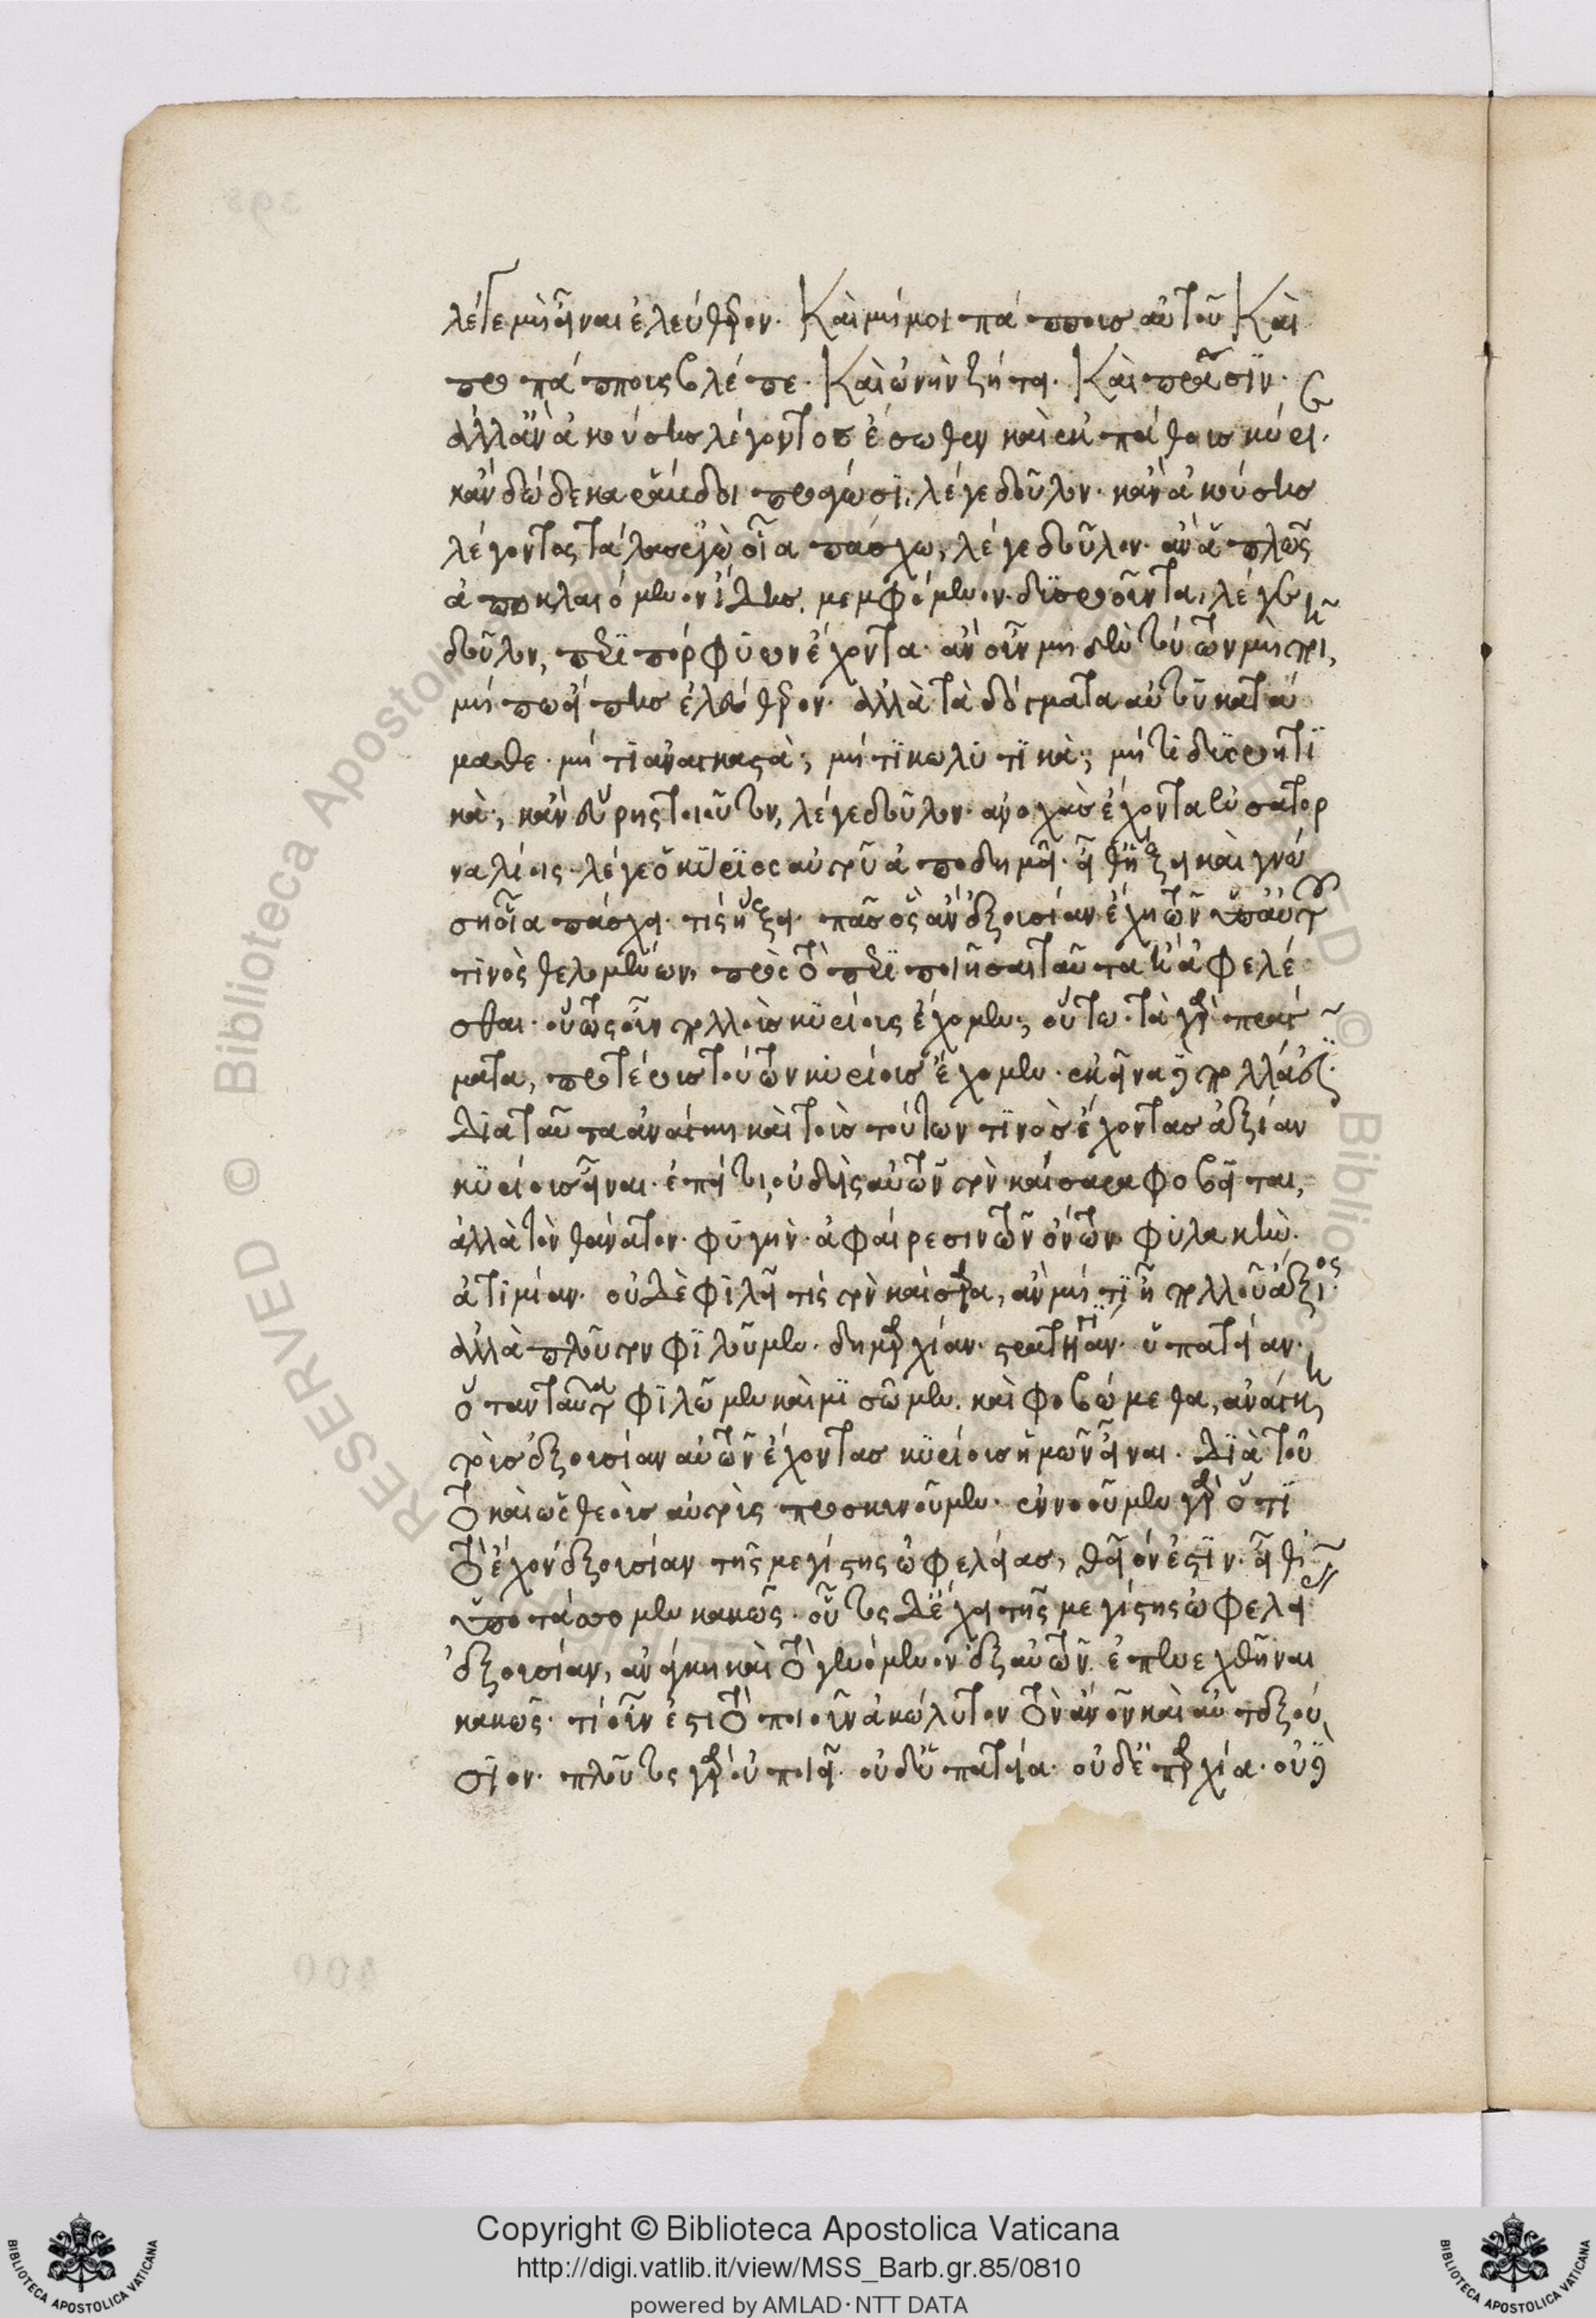 λέγετε μὴ εἶναι ἐλεύθερον. Καὶ μή μοι πάππους αὐτοῦ Καὶ
προπάππους βλέπε. Καὶ ὠνὴν ζήτει. Καὶ πρᾶσιν.
ἀλλ' ἂν ἀκούσῃς λέγοντος ἔσωθεν καὶ ἐκ πάθους κύριε.
κἂν δώδεκα ῥάβδοι προάγωσι, λέγε δοῦλον. κἂν ἀκούσῃς
λέγοντος τάλας ἐγὼ οἷα πάσχω, λέγε δοῦλον. ἂν ἁπλῶς
ἀποκλαιόμενον ἴδῃς, μεμφόμενον, δυσροοῦντα, λέγε
δοῦλον, περιπόρφυρον ἔχοντα. ἂν οὖν μηδὲν τούτων μὴ ποιῇ,
μήπω εἴπῃς ἐλεύθερον. ἀλλὰ τὰ δόγματα αὐτοῦ κατά
μαθε. μή τι ἀναγκαστά; μή τι κωλυτικά; μή τι δυσροητι
κά; κἂν εὕρῃς τοιοῦτον, λέγε δοῦλον. ἀνοχὰς ἔχοντα ἐν σατορ
ναλίοις. λέγε ὁ κύριος αὐτοῦ ἀποδημεῖ. εἶθ' ἥξει καὶ γνώ
σῃ οἷα πάσχει. τίς ἥξει. πᾶς ὃς ἂν ἐξουσίαν ἔχῃ τῶν ὑπ' αὐτοῦ
τινὸς θελομένων, πρὸς τὸ περιποιῆσαι ταῦτα ἢ ἀφελέ
σθαι. οὕτως οὖν πολλοὺς κυρίους ἔχομεν; οὕτω. τὰ γὰρ πράγ
ματα, προτέρους τούτων κυρίους ἔχομεν. ἐκεῖνα δὲ πολλά ἐστι.
Διὰ ταῦτα ἀνάγκη καὶ τοὺς τούτων τινὸς ἔχοντας ἐξουσίαν
κυρίους εἶναι. ἐπεί τοι οὐδεὶς αὐτὸν τὸν καίσαρα φοβεῖται,
ἀλλὰ τὸν θάνατον. φυγήν. ἀφαίρεσιν τῶν ὄντων. φυλακήν.
ἀτιμίαν. οὐδὲ φιλεῖ τις τὸν καίσαρα, ἂν μή τι ᾖ πολλοῦ ἄξιος.
ἀλλὰ πλοῦτον φιλοῦμεν. δημαρχίαν. στρατηγίαν. ὑπατείαν.
ὅταν ταῦτα φιλῶμεν καὶ μισῶμεν. καὶ φοβώμεθα, ἀνάγκη
τοὺς ἐξουσίαν αὐτῶν ἔχοντας κυρίους ἡμῶν εἶναι. Διὰ τοῦ
το καὶ ὡς θεοὺς αὐτοὺς προσκυνοῦμεν. ἐννοοῦμεν γὰρ ὅτι
τὸ ἔχον ἐξουσίαν τῆς μεγίστης ὠφελείας, θεῖόν ἐστιν. εἶθ'
ὑποτάσσομεν κακῶς. οὗτος δὲ ἔχει τῆς μεγίστης ὠφελεί
ἐξουσίαν, ἀνάγκη καὶ τὸ γενόμενον ἐξ αὐτῶν ἐπενεχθῆναι
κακῶς. τί οὖν ἐστι τὸ ποιοῦν ἀκώλυτον τὸν ἄνον καὶ αὐτεξού
σιον. πλοῦτος γὰρ οὐ ποιεῖ. οὐδ' ὑπατεία. οὐδ' ἐπαρχία. οὐδὲ